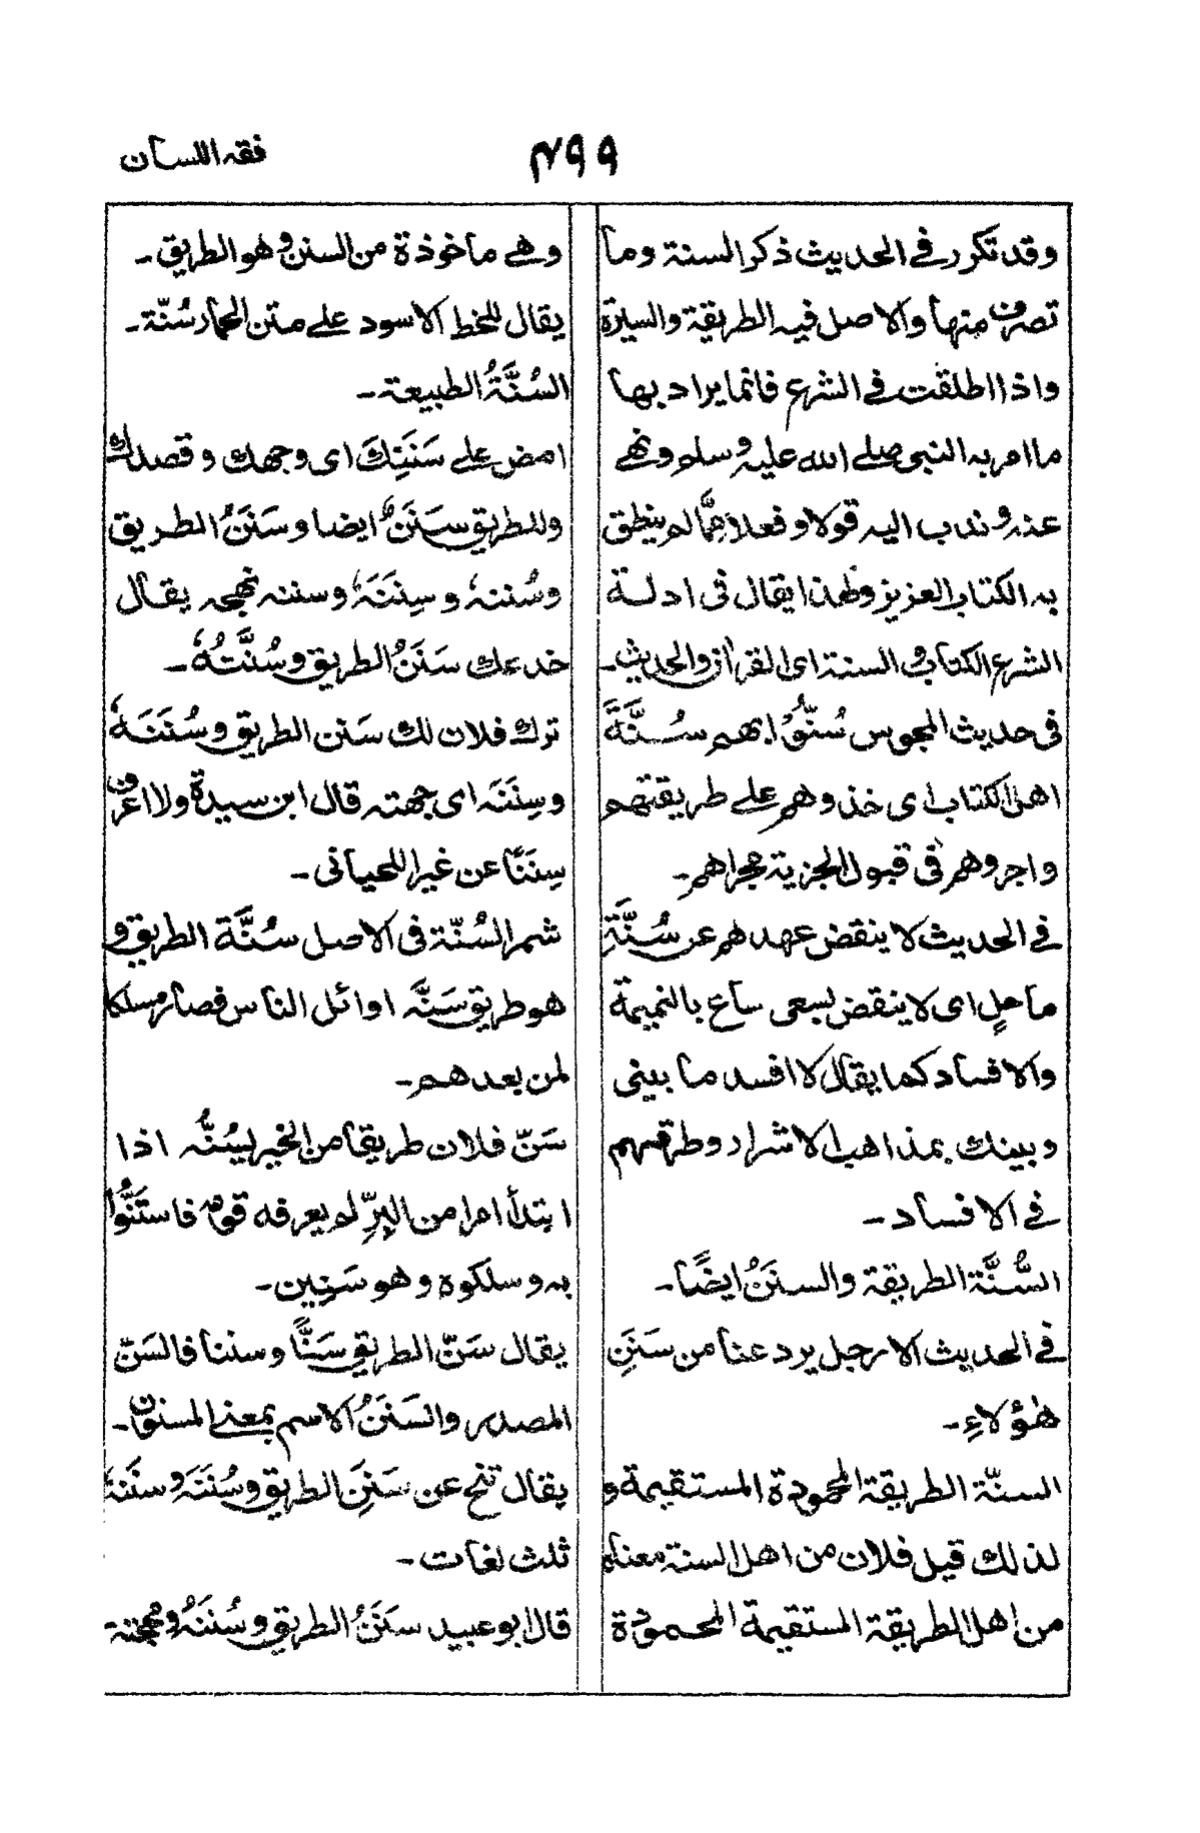 فقه اللسان
۴۹۹
وقد تكرر في الحديث ذكر السنة وما
تصرف منها والاصل فيه الطريقة والسيرة
واذا اطلقت في الشرع فانما يراد بها
ما امر به النبي صلے الله عليه وسلم ونهے
عنه وندب اليه قولا وفعلا مِمَّا لم ينطق
به الكتاب العزيز ولهذا يقال في ادلة
الشرع الكتاب والسنة اى القرآن والحديث۔
فى حديث المجوس سُنّوْا بهم سُنَّةَ
اهل الكتاب اى خذوهم على طريقتهم
واجروهم فى قبول الجزية مجراهم۔
في الحديث لا ينقض عهدهم عن سُنَّةِ
ماحلٍ اى لا ينقض بسعى ساع بالنميمة
والافساد كما يقال لا افسد ما بينى
وبينك بمذاهب الاشرار وطرقهم
في الافساد۔
السُّنَّة الطريقة والسنَنُ ايضًا۔
في الحديث الا رجل يرد عنا من سَنَنِ
هٰؤلاءِ۔
السنّة الطريقة المحمودة المستقيمة و
لذلك قيل فلان من اهل السنة معناه
من اهل الطريقة المستقيمة المحمودة
وهے ماخوذة من السنن وهو الطريق۔
يقال للخط الاسود علے متن الحمار سُنّة۔
السُنَّةُ الطبيعة۔
امض علے سَنَنِكَ اى وجهك وقصدك
وللطريق سَنَنٌ ايضا وسَنَنُ الطريق
وسُننهٗ وسِنَنَهٗ وسننه نهجه يقال
خدعك سَنَنُ الطريق وسُنَّتُهٗ۔
ترك فلان لك سَنن الطريق وسُنَنَهٗ
وسِنَنَه اى جهته قال ابن سيدة ولا اعرف
سِنَنًا عن غير اللحيانى۔
شمر السُنّة فى الاصل سُنَّة الطريق و
هو طريق سَنَّه اوائل الناس فصار مسلكا
لمن بعدهم۔
سَنّ فلان طريقا من الخير يسُنُّه اذا
ابتدأ امرا من البِرِّ لم يعرفه قومه فاستَنُّوا
به وسلكوه وهو سَنِين۔
يقال سَنّ الطريق سَنًّا وسننا فالسَنّ
المصدر والسَنَنُ الاسم بمعنے المسنون۔
يقال تنح عن سَنَنِ الطريق وسُنَنَه وسنَنه
ثلث لغات۔
قال ابو عبيد سَنَنُ الطريق وسُنَنَهُ ومحجته